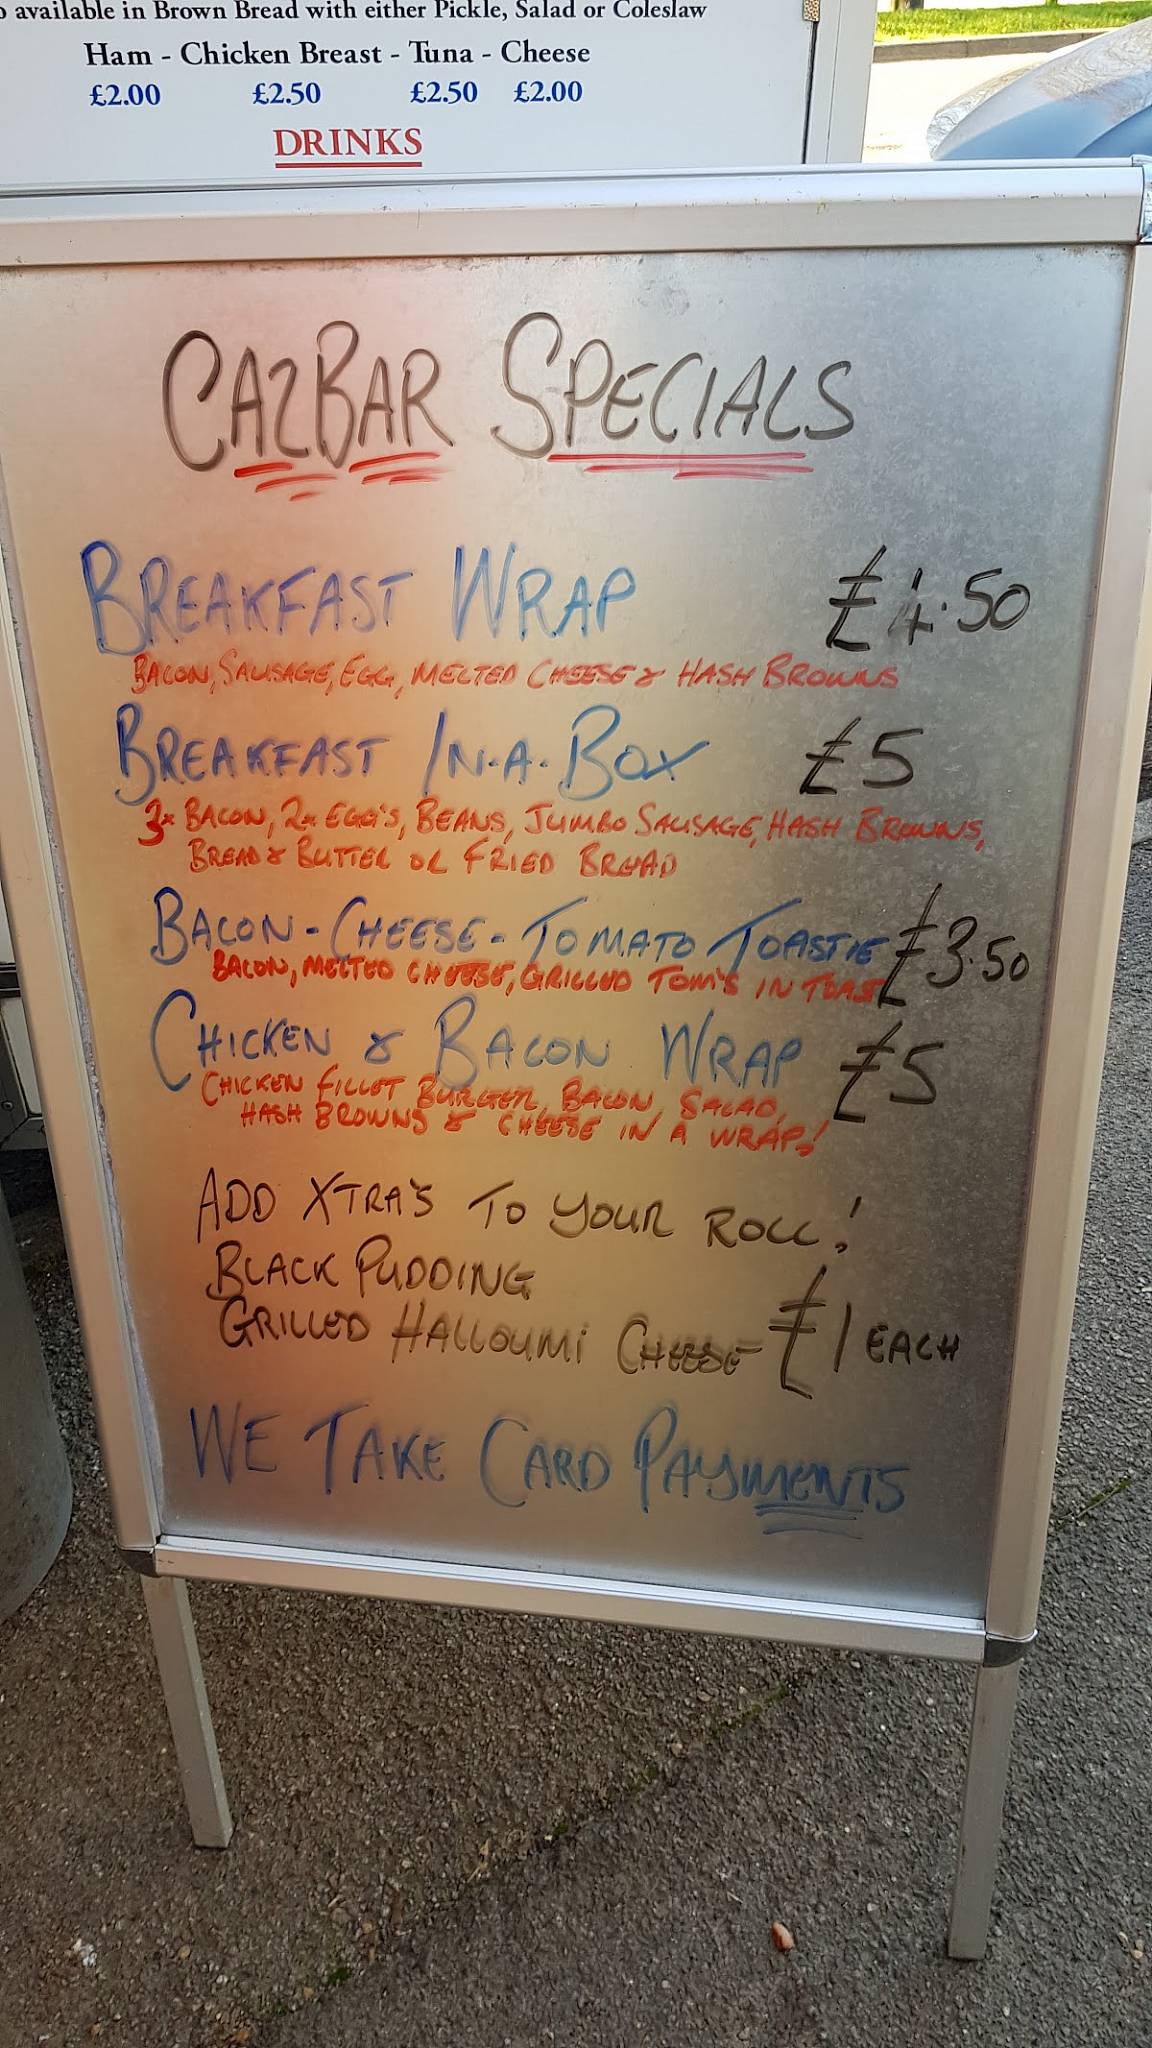 available in Brown Bread with either Pickle, Salad or Coleslaw
Ham - Chicken Breast - Tuna - Cheese
£2.00 £2.50 £2.50 £2.00
DRINKS
CAZBAR SPECIALS
BREAKFAST WRAP £4.50
BACON, SAUSAGE, EGG, MELTED CHEESE & HASH BROWNS
BREAKFAST IN-A-BOX £5
3x BACON, 2x EGG'S, BEANS, JUMBO SAUSAGE, HASH BROWNS,
BREAD & BUTTER OR FRIED BREAD
BACON-CHEESE-TOMATO TOASTIE £3.50
BACON, MELTED CHEESE, GRILLED TOM'S IN TOAST
CHICKEN & BACON WRAP £5
CHICKEN FILLET BURGER, BACON, SALAD,
HASH BROWNS & CHEESE IN A WRAP!
ADD XTRA'S TO YOUR ROLL!
BLACK PUDDING
GRILLED HALLOUMI CHEESE £1 EACH
WE TAKE CARD PAYMENTS